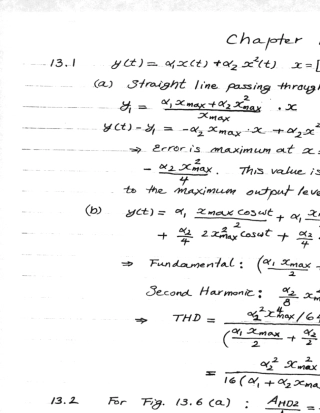 Chapter
13.1 y(t) = α₁x(t) + α₂x²(t) x = [
(a) Straight line passing through
y₁ = (α₁ xmax + α₂ x²max) / xmax · x
y(t) - y₁ = -α₂ xmax · x + α₂ x²
⇒ Error is maximum at x =
- α₂ x²max / 4 . This value is
to the maximum output leve
(b) y(t) = α₁ (xmax cosωt) / 2 + α₁
+ α₂/4 2x²max cosωt + α₂/4
⇒ Fundamental : (α₁ xmax / 2 +
Second Harmonic : α₂/8
⇒ THD = (α₂² x⁴max / 64) / (α₁ xmax / 2 + α₂/2
= (α₂² x²max) / 16 (α₁ + α₂ xmax
13.2 For Fig. 13.6 (a) : AHD2 / =